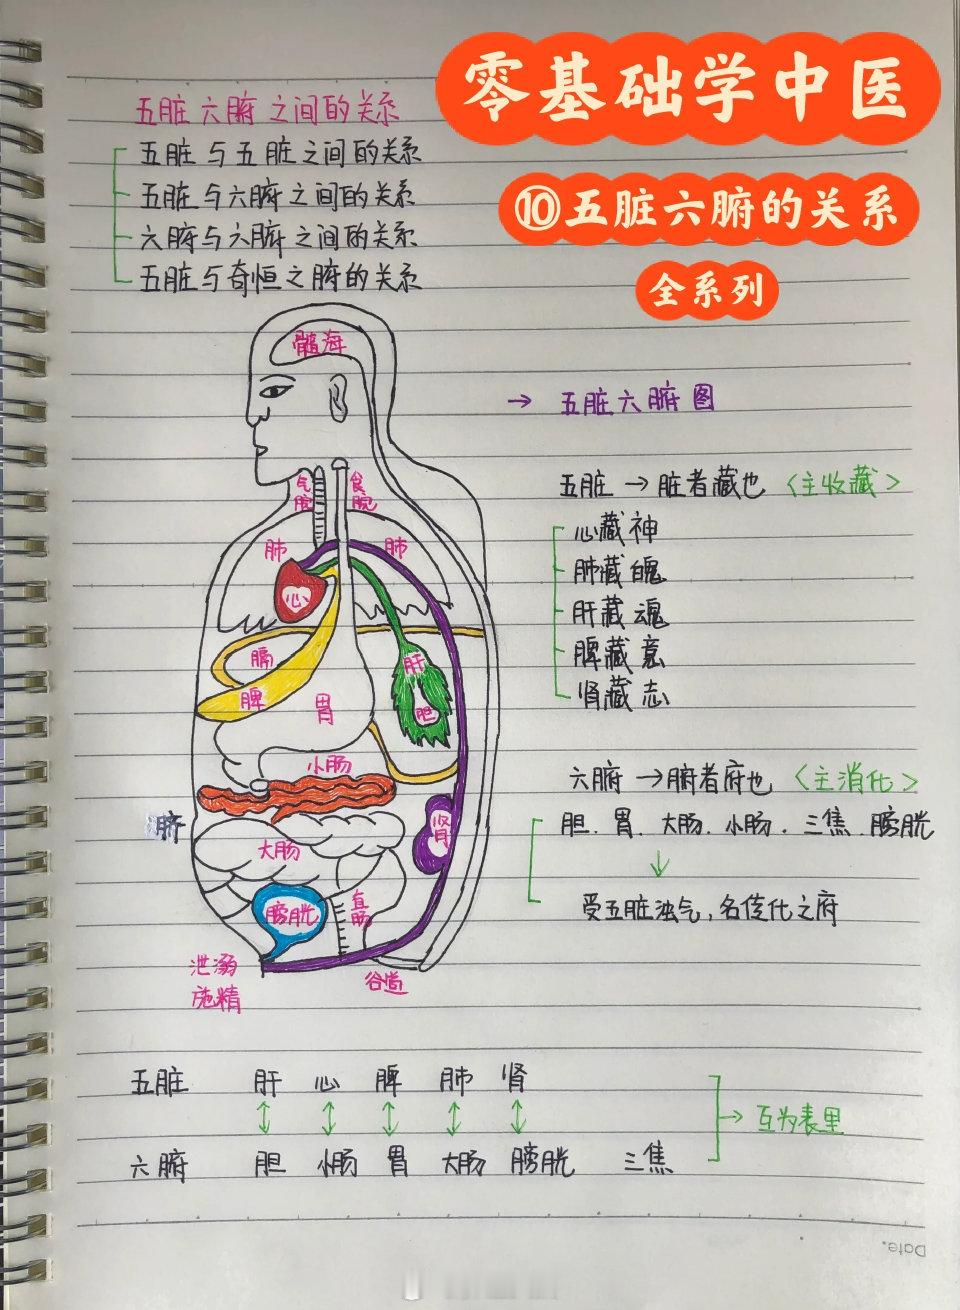 零基础学中医
⑩五脏六腑的关系
全系列
五脏六腑之间的关系
五脏与五脏之间的关系
五脏与六腑之间的关系
六腑与六腑之间的关系
五脏与奇恒之腑的关系
髓海
→ 五脏六腑图
气脘
食脘
肺
肺
心
膈
脾
胃
肝
胆
小肠
脐
大肠
肾
膀胱
直肠
泄溺
施精
谷道
五脏 → 脏者藏也 <主收藏>
心藏神
肺藏魄
肝藏魂
脾藏意
肾藏志
六腑 → 腑者府也 <主消化>
胆、胃、大肠、小肠、三焦、膀胱
↓
受五脏浊气,名传化之府
五脏 肝 心 脾 肺 肾
↕ ↕ ↕ ↕ ↕
→ 互为表里
六腑 胆 小肠 胃 大肠 膀胱 三焦
Date.